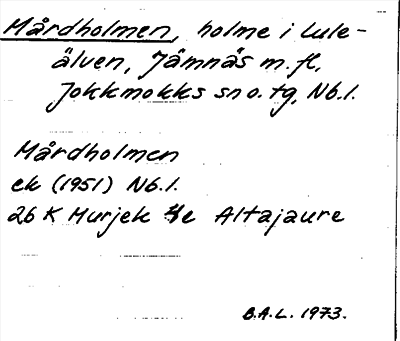 Mårdholmen, holme i Lule-
älven, Jämnäs m. fl.,
Jokkmokks sn o. tg, Nb. l.
Mårdholmen
ek (1951) Nb. l.
26 K Murjek 4e Altajaure
B.A.L. 1973.